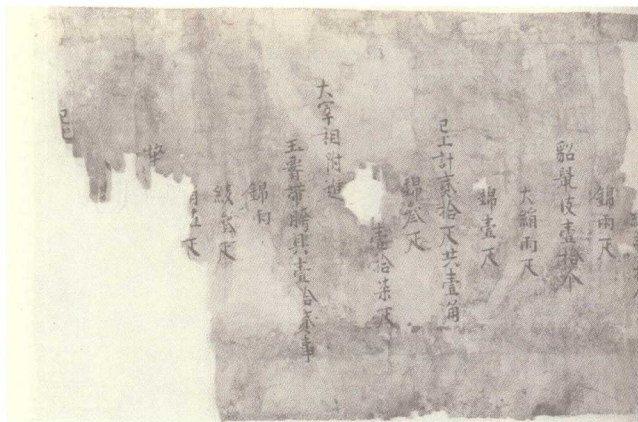 錦兩疋
貂鼠皮壹拾个
大絹兩疋
錦壹疋
已上計貳拾疋共壹角
錦貳疋
壹拾柒疋
大宰相附進
玉帶胯具壹拾叁事
錦兩
綾貳疋
五疋